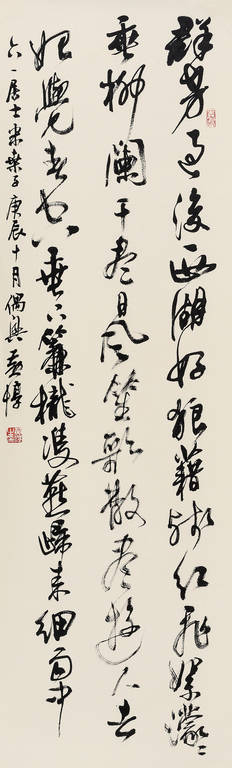 群芳过後西湖好狼藉残红飞絮濛濛
垂柳阑干尽日风笙歌散尽游人去
始觉春空垂下簾櫳双燕归来细雨中
六一居士采桑子庚辰十月偶兴黄惇